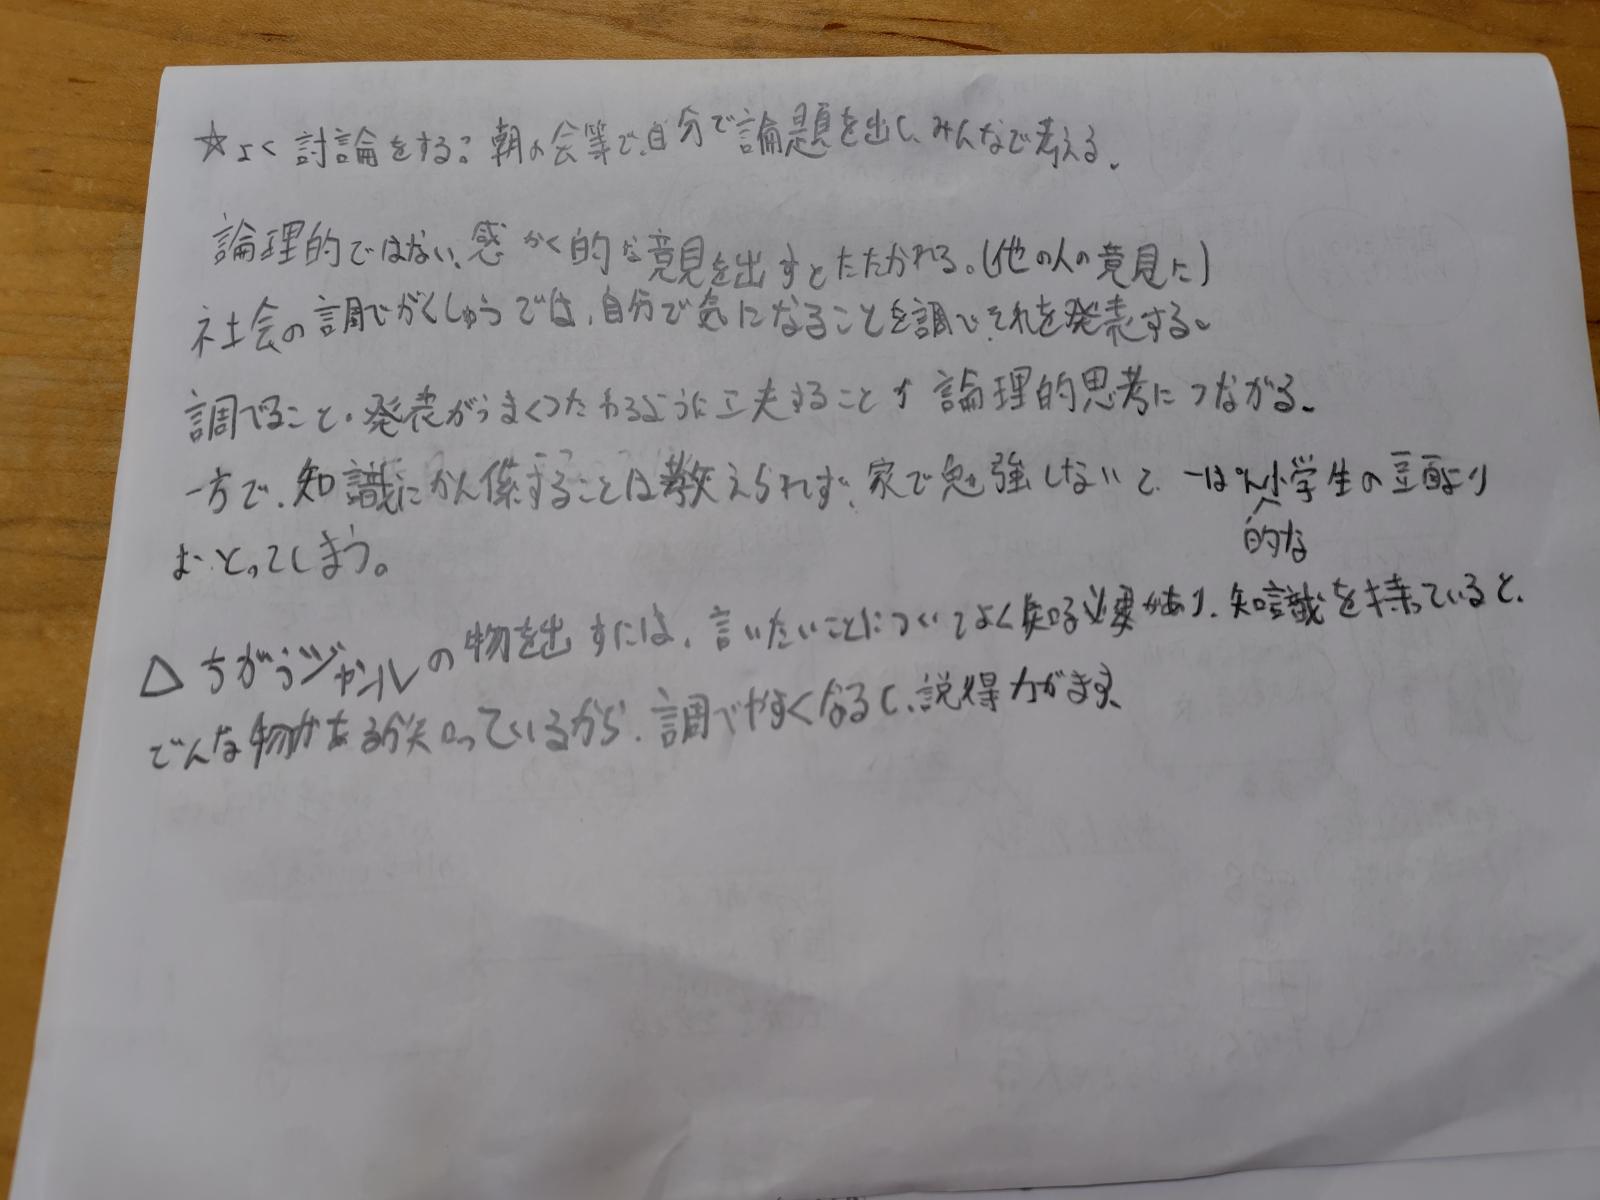 ☆よく討論をする。朝の会等で、自分で論題を出し、みんなで考える。
論理的ではない、感かく的な意見を出すとたたかれる。(他の人の意見に)
社会の調べがくしゅうでは、自分で気になることを調べ、それを発表する。
調べること・発表がうまくつたわるように工夫することが論理的思考につながる。
一方で、知識にかん係することは教えられず、家で勉強しないと、一ぱん小学生の頭より
的な
おとってしまう。
△ちがうジャンルの物を出すには、言いたいことについてよく知る必要があり、知識を持っていると、
どんな物があるか知っているから、調べやすくなるし、説得力がます、